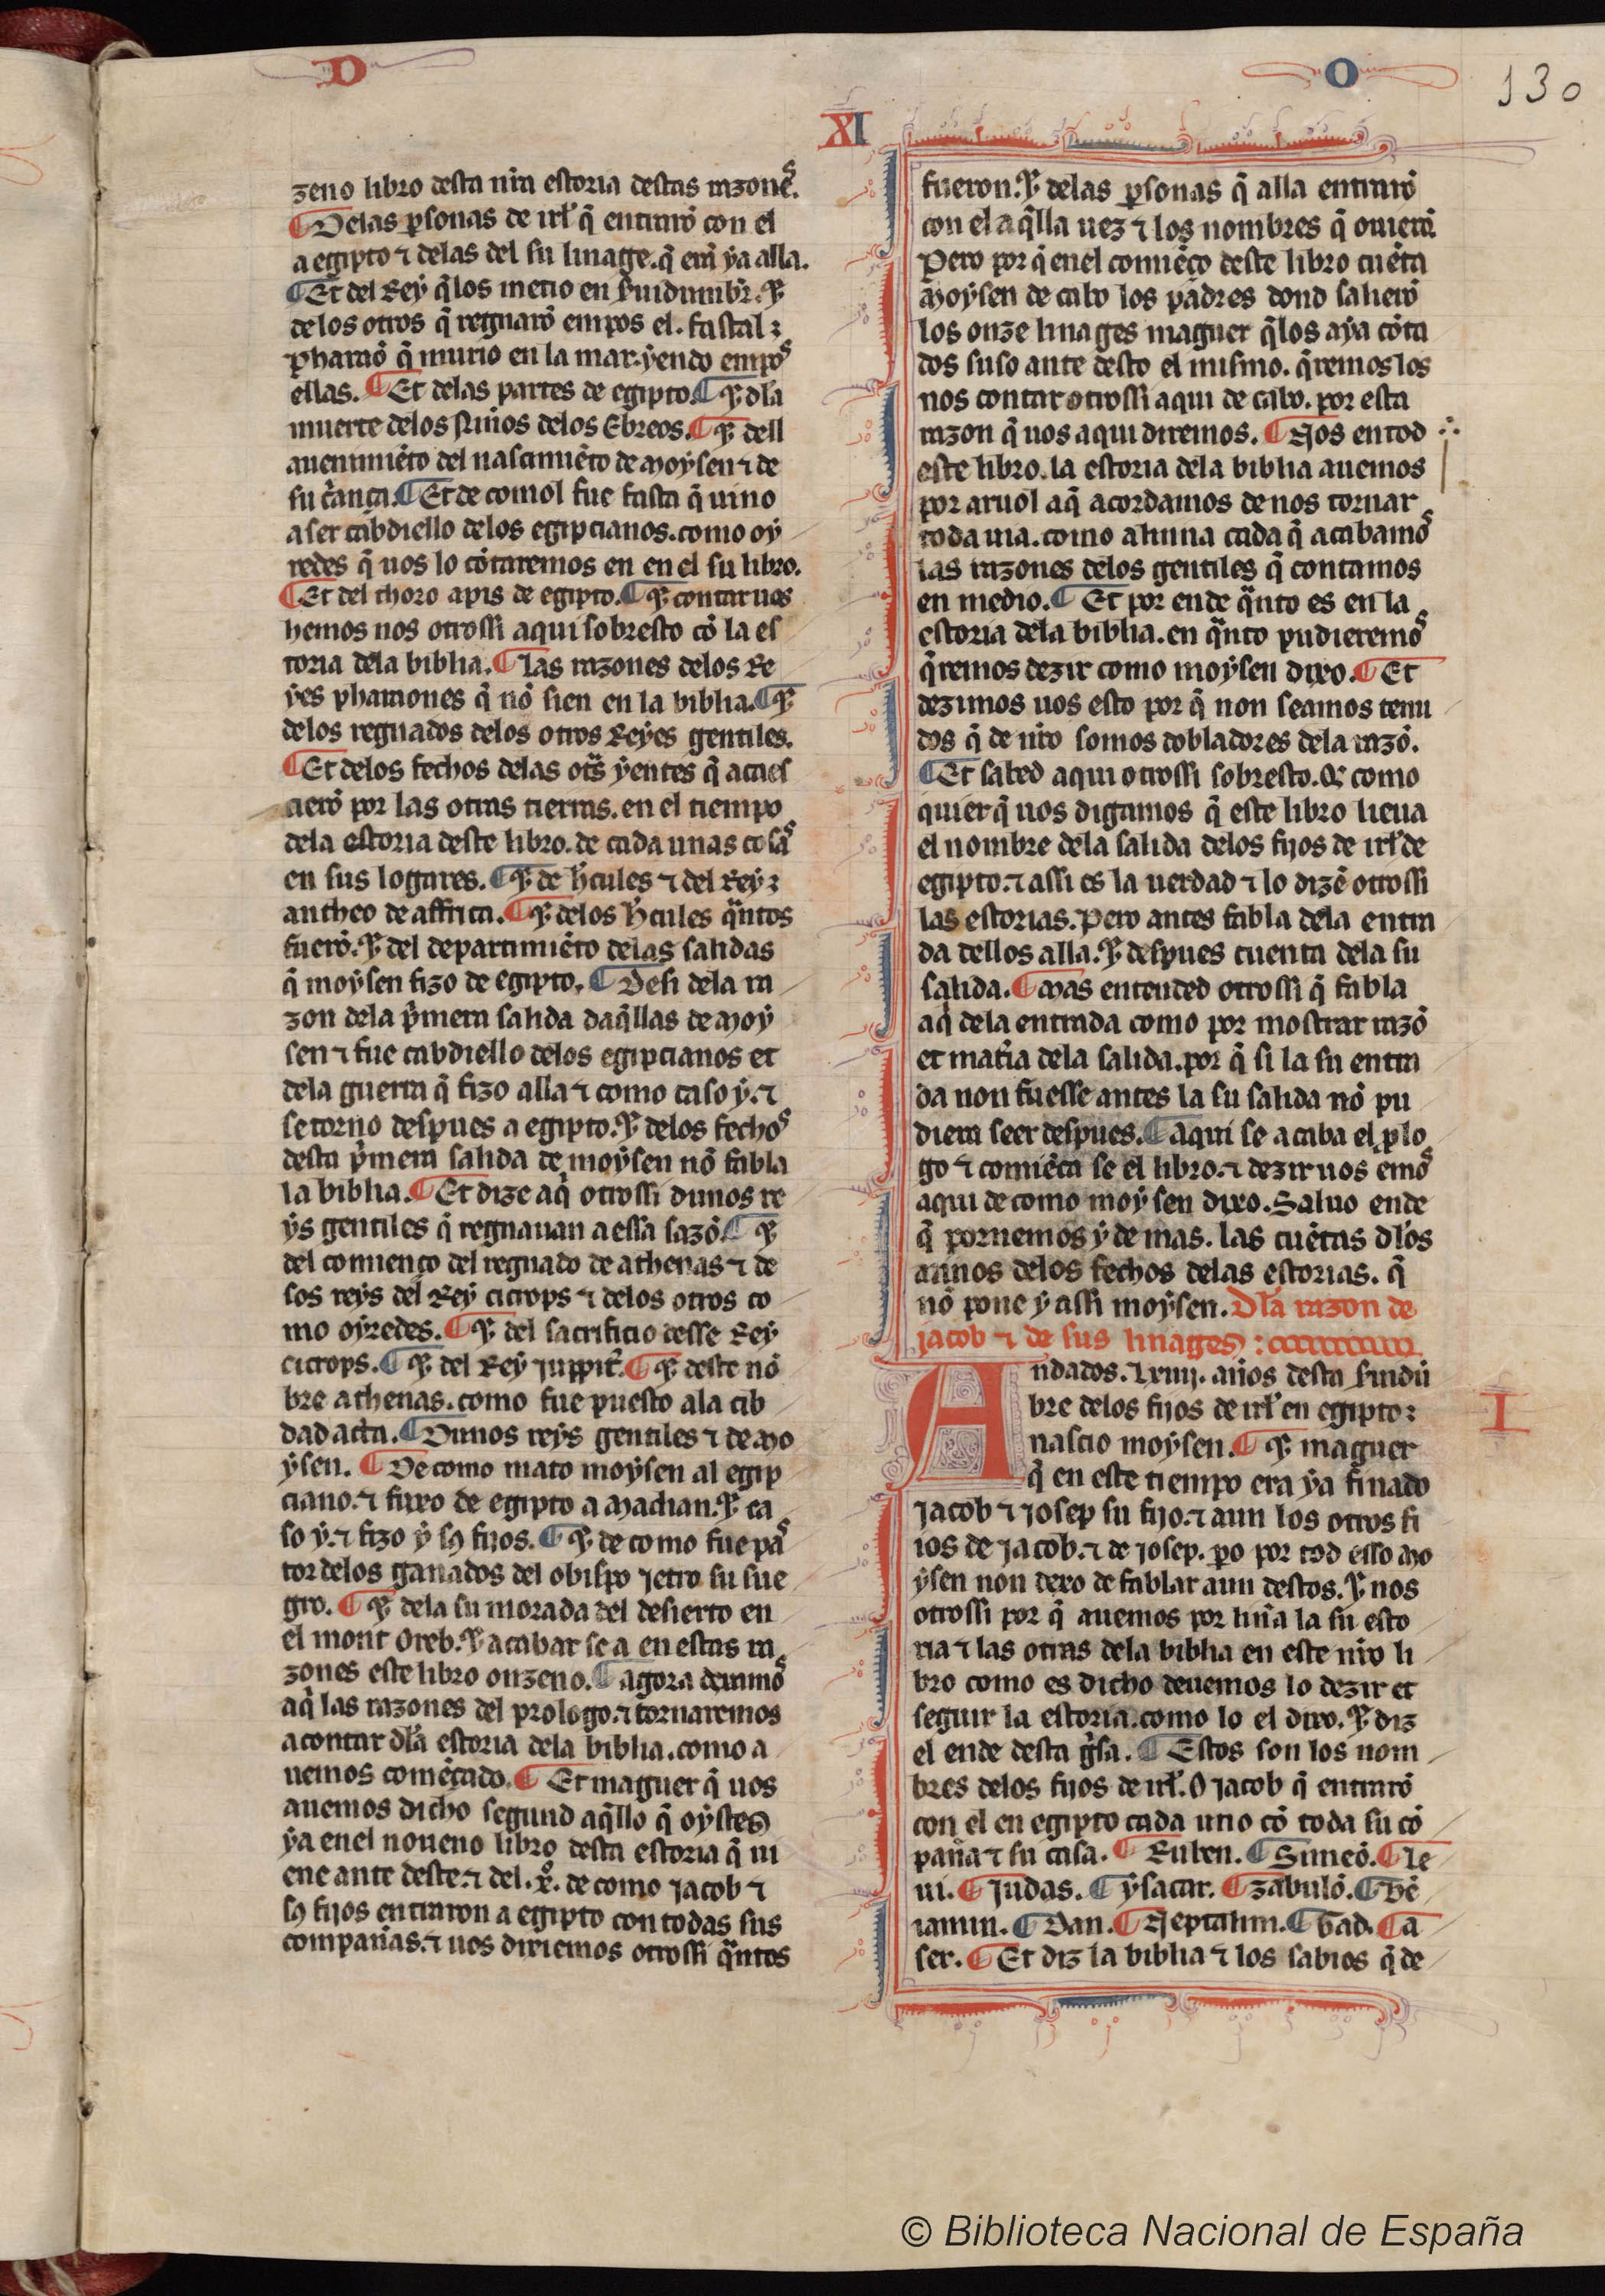 D
O
130
XI
zeno libro desta nr̃a estoria destas razones.
¶ Delas ꝑsonas de irł q̃ entrarõ con el
a egipto ⁊ delas del su linage. q̃ erã ya alla.
¶ Et del Rey q̃los metio en seruidumbr̃. ⁊
de los otros q̃ regnarõ empos el. fastal
pharaõ q̃ murio en la mar. yendo empos
ellas. ¶ Et delas partes de egipto. ¶ ⁊ dl̃a
muerte delos Ninos delos Ebreos. ¶ ⁊ dell
auenimiẽto del nascimiẽto de Moysen ⁊ de
su criança. ¶ Et de comol fue fasta q̃ uino
a ser cabdiello delos egipcianos. como oy
redes q̃ uos lo cõtaremos en en el su libro.
¶ Et del thoro apis de egipto. ¶ ⁊ contar uos
hemos nos otrossi aqui sobresto cõ la es
toria dela biblia. ¶ Las razones delos Re
yes pharaones q̃ nõ sien en la biblia. ¶ ⁊
delos regnados delos otros Reyes gentiles.
¶ Et delos fechos delas otras yentes q̃ acaes
cierõ por las otras tierras. en el tiempo
dela estoria deste libro. de cada unas cosas
en sus logares. ¶ ⁊ de hr̃cules ⁊ del Rey
antheo de affrica. ¶ ⁊ delos hr̃cules quantos
fuerõ. ⁊ del departimiẽto delas salidas
q̃ moysen fizo de egipto. ¶ Desi dela ra
zon dela primera salida daq̃llas de Moy
sen ⁊ fue cabdiello delos egipcianos et
dela guerra q̃ fizo alla ⁊ como caso y. ⁊
se torno despues a egipto. ⁊ delos fechos
desta primera salida de moysen nõ fabla
la biblia. ¶ Et dize aq̃ otrossi dunos re
ys gentiles q̃ regnauan a essa sazõ. ¶ ⁊
del comienço del regnado de athenas ⁊ de
los reys del Rey cicrops ⁊ delos otros co
mo oyredes. ¶ ⁊ del sacrificio desse Rey
cicrops. ¶ ⁊ del Rey juppit̃. ¶ ⁊ deste nõ
bre athenas. como fue puesto ala cib
dad acta. ¶ Dunos reys gentiles ⁊ de Mo
ysen. ¶ De como mato moysen al egip
ciano. ⁊ fuxo de egipto a Madian. ⁊ ca
so y. ⁊ fizo y sꝯ fijos. ¶ ⁊ de como fue pas
tor delos ganados del obispo jetro su sue
gro. ¶ ⁊ dela su morada del desierto en
el mont Oreb. ⁊ acabar se a en estas ra
zones este libro onzeno. ¶ agora dexamos
aq̃ las razones del prologo. ⁊ tornaremos
a contar dl̃a estoria dela biblia. como a
uemos começado. ¶ Et maguer q̃ uos
auemos dicho segund aq̃llo q̃ oystes
ya enel noueno libro desta estoria q̃ ui
ene ante deste. ⁊ del .xº. de como jacob ⁊
sꝯ fijos entraron a egipto con todas sus
compan̄as. ⁊ uos dixiemos otrossi quantos
fueron. ⁊ delas ꝑsonas q̃ alla entrarõ
con el aq̃lla uez ⁊ los nombres q̃ ouierõ.
Pero por q̃ enel comiẽço deste libro cuẽta
Moysen de cabo los padres dond salierõ
los onze linages maguer q̃los aya cõta
dos suso ante desto el mismo. q̃remos los
nos contar otrossi aqui de cabo. por esta
razon q̃ uos aqui diremos. ¶ Nos en tod
este libro. la estoria dela biblia auemos
por aruol aq̃ acordamos de nos tornar
toda uia. como a linna cada q̃ acabamos
las razones delos gentiles q̃ contamos
en medio. ¶ Et por ende quanto es en la
estoria dela biblia. en quanto pudieremos
q̃remos dezir como moysen dixo. ¶ Et
dezimos uos esto por q̃ non seamos tenu
dos q̃ de nr̃o somos dobladores dela razõ.
¶ Et sabed aqui otrossi sobresto. Q̃ como
quier q̃ uos digamos q̃ este libro lieua
el nombre dela salida delos fijos de irł de
egipto. ⁊ assi es la uerdad ⁊ lo dizẽ otrossi
las estorias. Pero antes fabla dela entra
da dellos alla. ⁊ despues cuenta dela su
salida. ¶ Mas entended otrossi q̃ fabla
aq̃ dela entrada como por mostrar razõ
et mat̃ia dela salida. por q̃ si la su entra
da non fuesse antes la su salida nõ pu
diera seer despues. ¶ aqui se acaba el ꝓlo
go ⁊ comiẽça se el libro. ⁊ dezir uos emos
aqui de como moysen dixo. Saluo ende
q̃ pornemos y de mas. las cuẽtas dl̃os
annos delos fechos delas estorias. q̃
nõ pone y assi moysen. Dl̃a razon de
jacob ⁊ de sus linages :
Andados. Lxiiij. an̄os desta seruidũ
bre delos fijos de irł en egipto:
nascio moysen. ¶ ⁊ maguer
q̃ en este tiempo era ya finado
jacob ⁊ josep su fijo. ⁊ aun los otros fi
ios de jacob. ⁊ de josep. ꝑo por tod esso Mo
ysen non dexo de fablar aun destos. ⁊ nos
otrossi por q̃ auemos por lin̄a la su esto
ria ⁊ las otras dela biblia en este nr̃o li
bro como es dicho deuemos lo dezir et
seguir la estoria. como lo el dixo. ⁊ diz
el ende desta guisa. ¶ Estos son los nom
bres delos fijos de irł. O jacob q̃ entrarõ
con el en egipto cada uno cõ toda su cõ
pan̄a ⁊ su casa. ¶ Ruben. ¶ Simeõ. ¶ Le
ui. ¶ Judas. ¶ ysacar. ¶ zabulõ. ¶ Bẽ
iamin. ¶ Dan. ¶ Neptalim. ¶ Gad. ¶ A
ser. ¶ Et diz la biblia ⁊ los sabios q̃ de
I
© Biblioteca Nacional de España